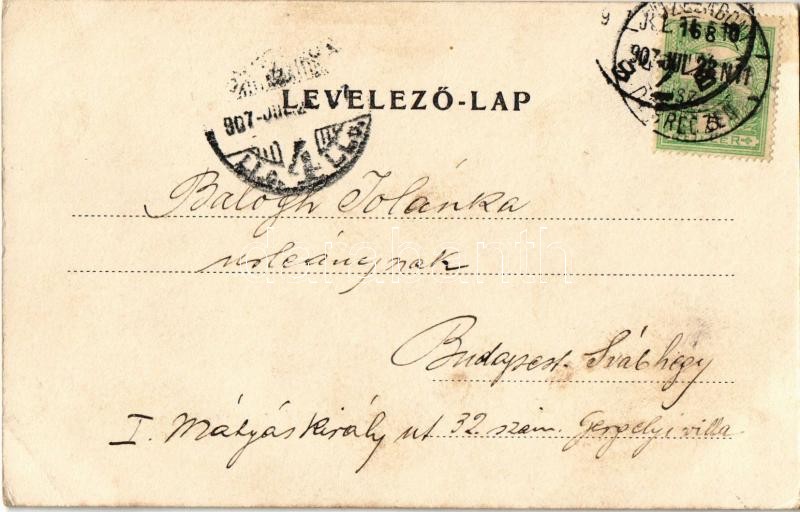 LEVELEZŐ-LAP
907 JUL.
4
Balogh Jolánka
urleánynak
Budapest. Svábhegy
I. Mátyás király ut 32 szám. Gergelyi villa
darabanth